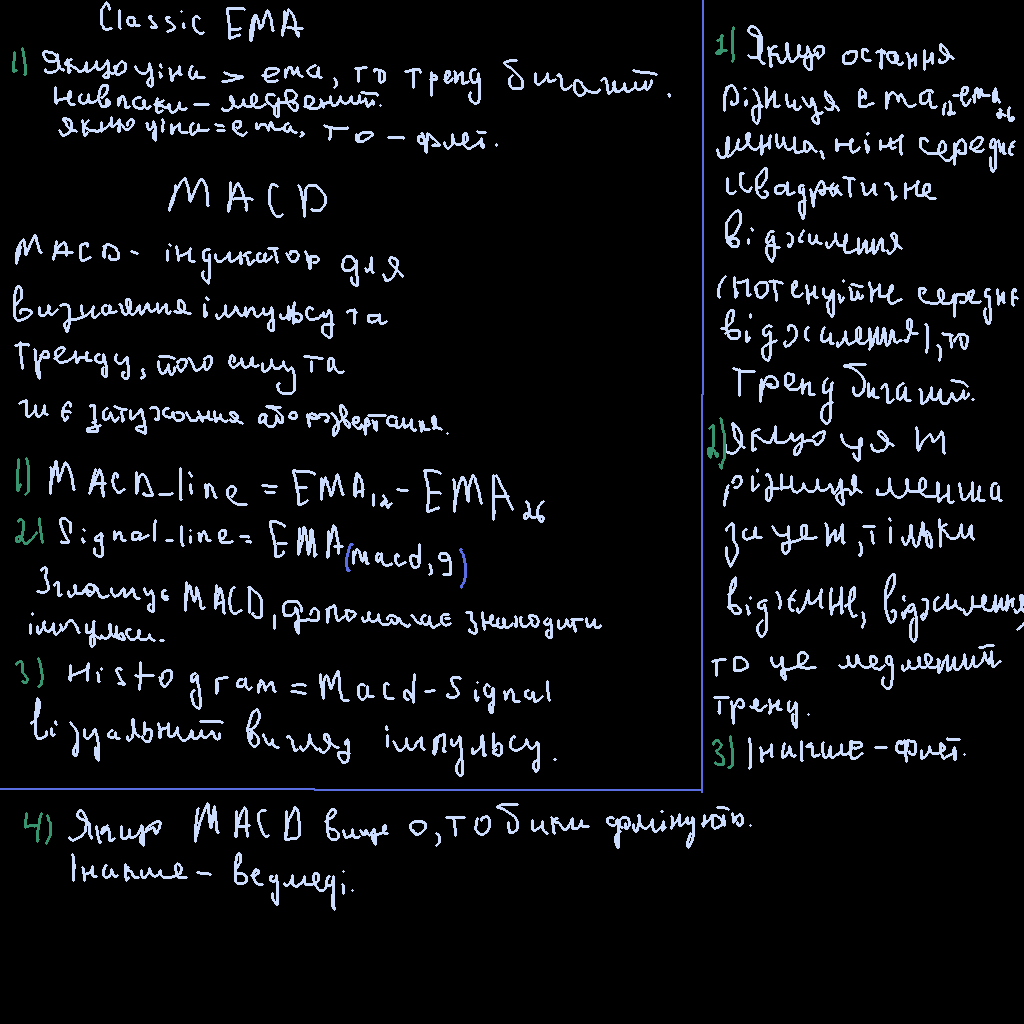 Classic EMA
1) Якщо ціна > ema, то тренд бичачий.
навпаки - медвежий.
якщо ціна = ema, то - флет.
MACD
MACD - індикатор для
визначення імпульсу та
тренду, його силу та
чи є затухання або розвертання.
1) MACD_line = EMA12 - EMA26
2) Signal_line = EMA(macd, 9)
Згладжує MACD, допомагає знаходити
імпульси.
3) Histogram = Macd - Signal
візуальний вигляд імпульсу.
1) Якщо остання
різниця ema12 - ema26
менша, ніж середнє
квадратичне
відхилення
(потенційне середнє
відхилення), то
тренд бичачий.
2) Якщо ця ж
різниця менша
за це ж, тільки
від'ємне, відхилення,
то це медмежий
тренд.
3) Інакше - флет.
4) Якщо MACD вище 0, то бики домінують.
Інакше - ведмеді.